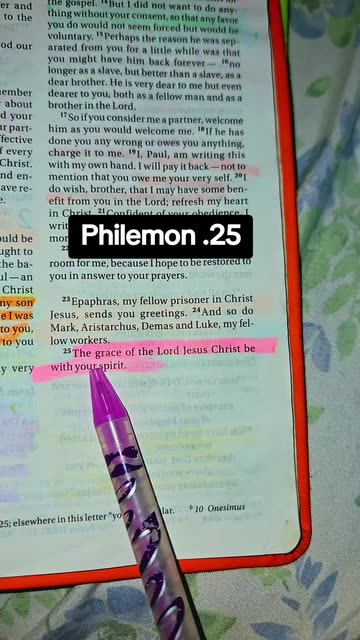 the gospel. 14But I did not want to do any-
thing without your consent, so that any favor
you do would not seem forced but would be
voluntary. 15Perhaps the reason he was sep-
arated from you for a little while was that
you might have him back forever— 16no
longer as a slave, but better than a slave, as a
dear brother. He is very dear to me but even
dearer to you, both as a fellow man and as a
brother in the Lord.
17So if you consider me a partner, welcome
him as you would welcome me. 18If he has
done you any wrong or owes you anything,
charge it to me. 19I, Paul, am writing this
with my own hand. I will pay it back—not to
mention that you owe me your very self. 20I
do wish, brother, that I may have some ben-
efit from you in the Lord; refresh my heart
in Christ. 21Confident of your obedience, I
Philemon .25
room for me, because I hope to be restored to
you in answer to your prayers.
23Epaphras, my fellow prisoner in Christ
Jesus, sends you greetings. 24And so do
Mark, Aristarchus, Demas and Luke, my fel-
low workers.
25The grace of the Lord Jesus Christ be
with your spirit.
25; elsewhere in this letter "you lar. b 10 Onesimus